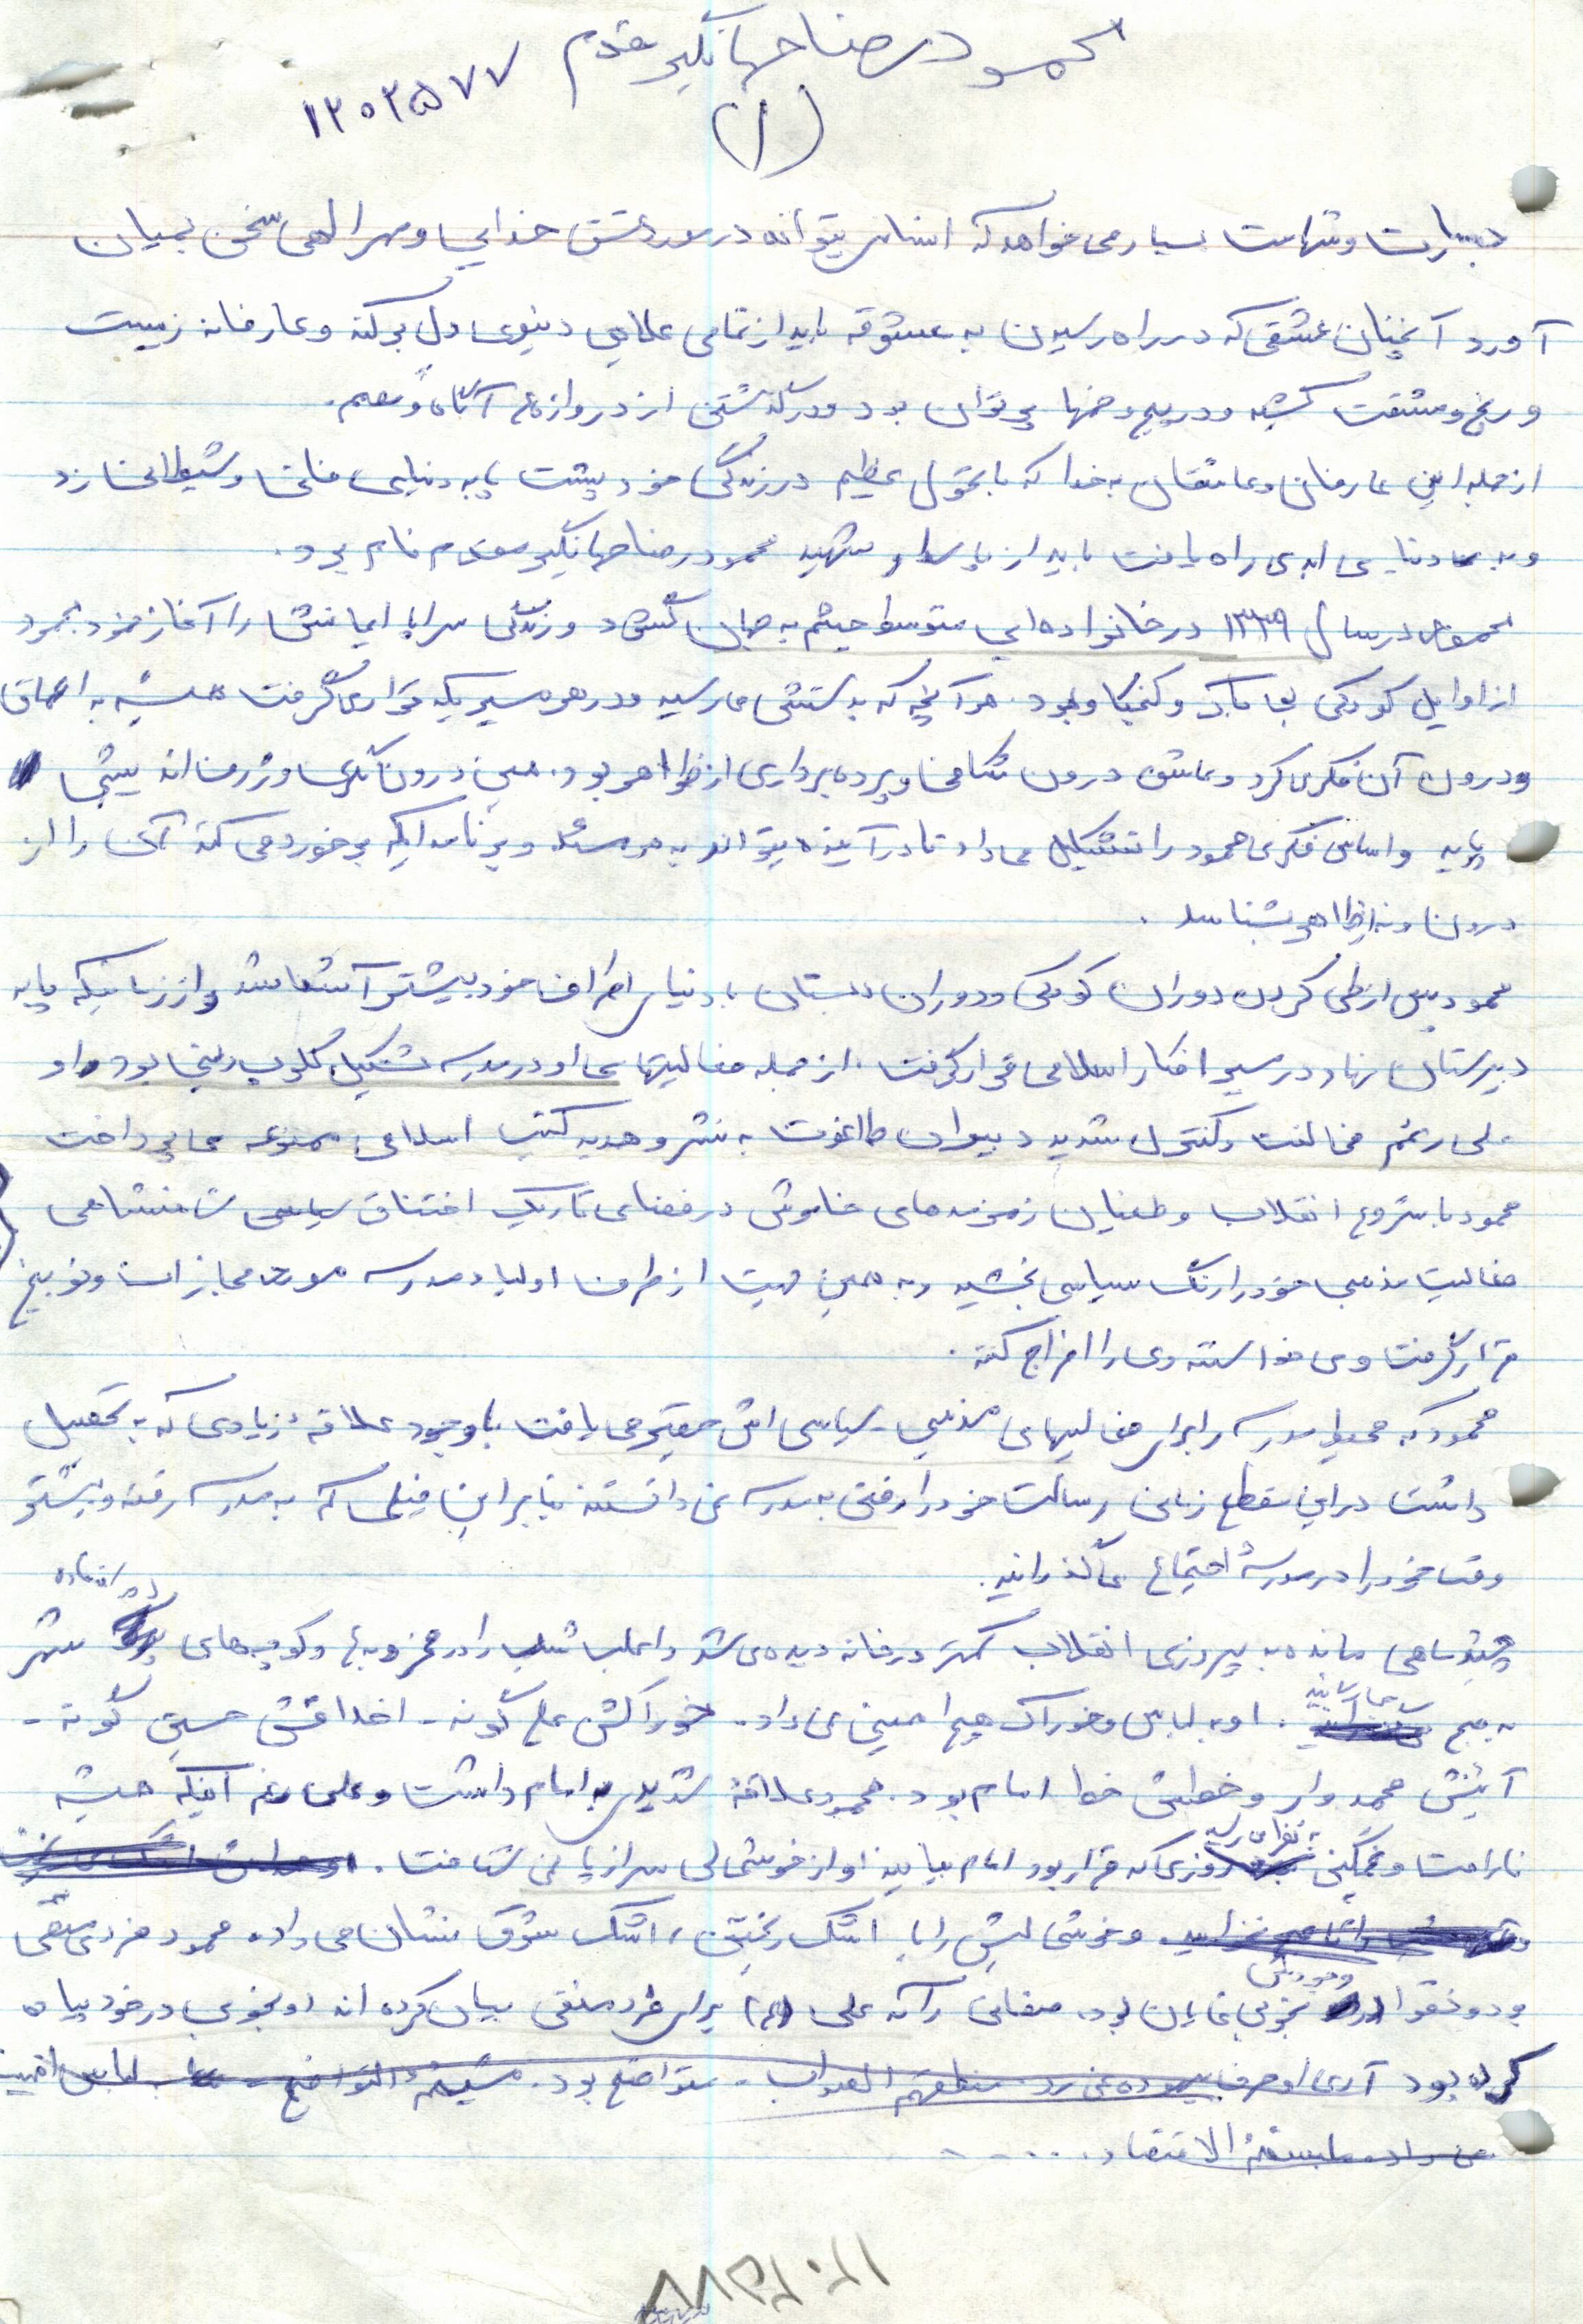 محمود رضا جهانگیر مقدم
۱۲۰۲۵۷۷
(۱)
جسارت و شهامت بسیار می خواهد که انسان بتواند در مورد عشق خدایی و مهر الهی سخن بمیان
آورد آنچنان عشقی که در راه رسیدن به معشوقه باید از تمامی علایق دنیوی دل برکند و عارفانه زیست
و رنج و مشقت کشید و در پیچ و خمها پر توان بود و در گذشتن از دروازه ها آگاه و مصمم.
از جمله این عارفان و عاشقان به خدا که با تحول عظیم در زندگی خود پشت پا به دنیای فانی و شیطانی زد
و به دنیای ابدی راه یافت باید از پاسدار شهید محمودرضا جهانگیر مقدم نام برد.
محمود در سال ۱۳۳۹ در خانواده ایی متوسط چشم به جهان گشود و زندگی سراپا ایمانش را آغاز نمود محمود
از اوایل کودکی کنجکاو بود. هر آنچه که به دستش می رسید و در هر مسیریکه قرار می گرفت همیشه به اعماق
و درون آن فکر می کرد و عاشق درون شکافی و پرده برداری از ظواهر بود. همین درون نگری و ژرف اندیشی
پایه و اساس فکری محمود را تشکیل می داد تا در آینده بتواند به هر مسئله و برنامه ایکه برخورد می کند آن را از
درون و نه از ظاهر بشناسد.
محمود پس از طی کردن دوران کودکی و دوران دبستان با دنیای اطراف خود بیشتر آشنا شد و از زمانیکه پا به
دبیرستان نهاد در مسیر افکار اسلامی قرار گرفت. از جمله فعالیتهای او در مدرسه تشکیل کلوپ دینی بود و او
علی رغم مخالفت و کنترل شدید دبیران طاغوت به نشر و هدیه کتب اسلامی ممنوعه می پرداخت
محمود با شروع انقلاب و طغیان زمزمه های خاموش در فضای تاریک اختناق سیاسی شاهنشاهی
فعالیت مذهبی خود را رنگ سیاسی بخشید و به همین جهت از طرف اولیاء مدرسه مورد مجازات و توبیخ
قرار گرفت و می خواستند وی را اخراج کنند.
محمود که محیط مدرسه را برای فعالیتهای مذهبی - سیاسی اش حقیر می یافت با وجود علاقه زیادی که به تحصیل
داشت در این مقطع زمانی رسالت خود را رفتن به مدرسه نمی دانست بنابراین خیلی کم به مدرسه رفته و بیشتر
وقت خود را در مدرسۀ اجتماع می گذرانید.
چند ماهی مانده به پیروزی انقلاب کمتر در خانه دیده می شد و اغلب شب را در مخروبه ها و کوچه های دور افتاده شهر
به صبح می رسانید. او به لباس و خوراک هیچ اهمیتی نمی داد. خوراکش علی گونه - اخلاقش حسین گونه -
آئینش محمد وار و خطش خط امام بود. محمود علاقۀ شدیدی به امام داشت و علی رغم اینکه همیشه
ناراحت و غمگین بنظر می رسید روزی که قرار بود امام بیایند او از خوشحالی سر از پا نمی شناخت.
و خوشحالیش را با اشک ریختن، اشک شوق نشان می داد. محمود فردی متقی
بود و تقوا در وجودش بخوبی نمایان بود. صفاتی را که علی (ع) برای فرد متقی بیان کرده اند او بخوبی در خود پیاده
کرده بود آری او حرف بیهوده نمی زد منطقهم الصواب - متواضع بود. مشیهم التواضع - لباس اهمیت
نمی داد. ملبسهم الاقتصاد . . . . .
۱۲۰۲۵۷۷